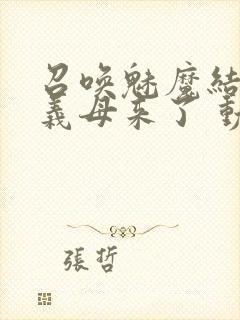 召唤魅魔结
義母来了 動
張哲